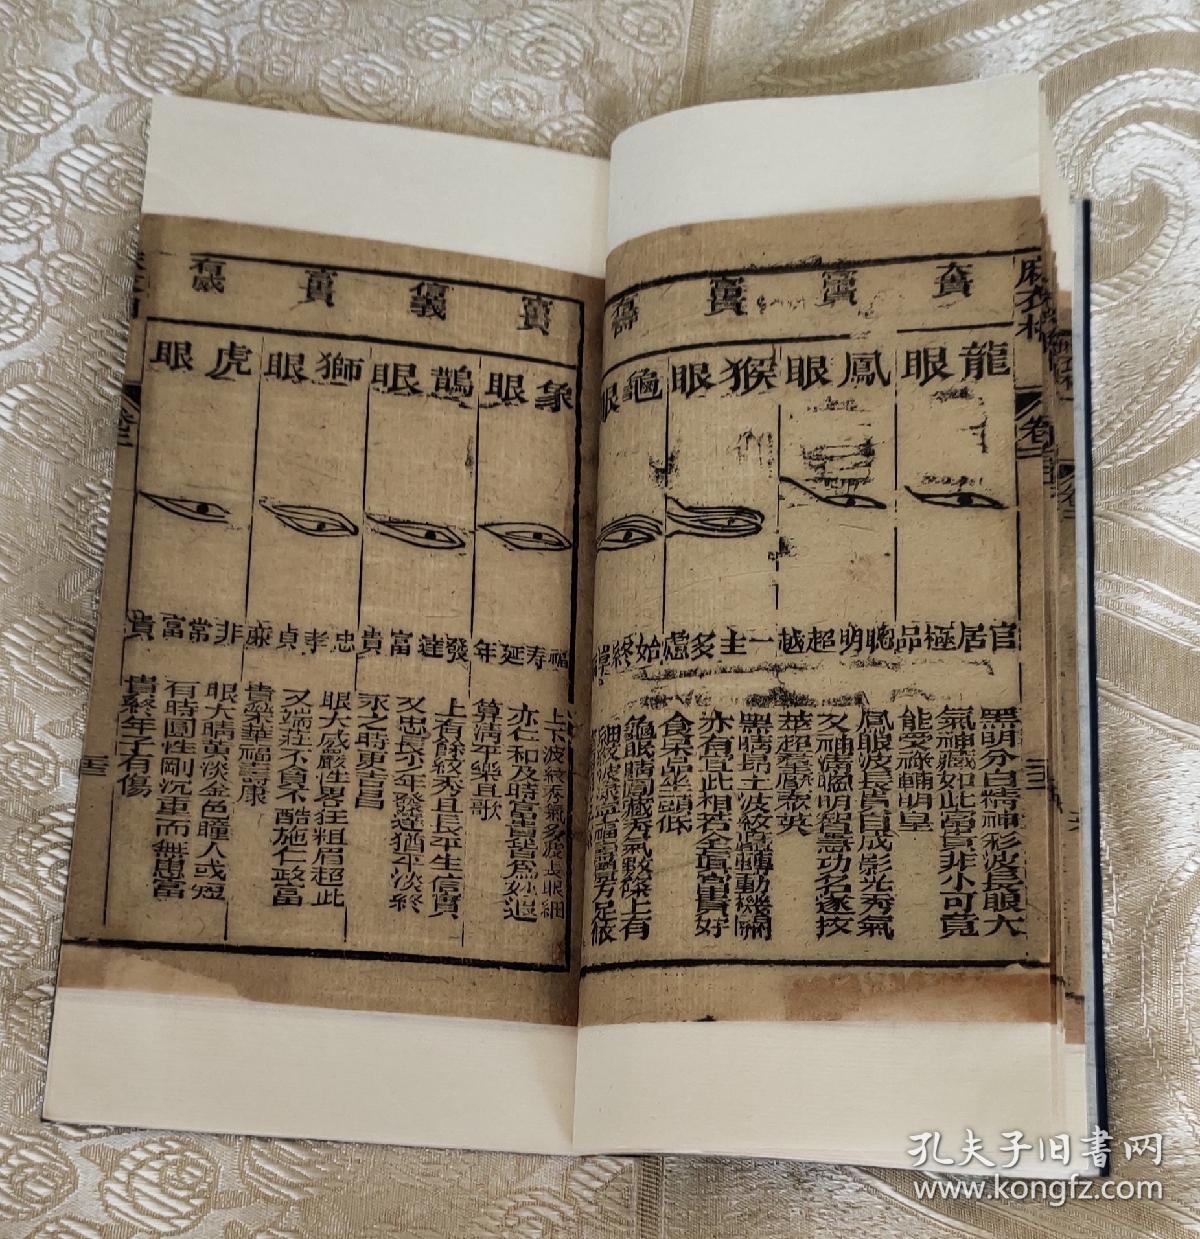 麻衣相
卷三
大貴
龍眼
官居極品
黑明分白精神彩波長眼大
氣神藏如此富貴非小可竟
能受祿輔明皇
富貴
鳳眼
聰明超越
鳳眼波長貴自成影光秀氣
又神清聰明智慧功名遂拔
萃超羣壓衆英
富貴
猴眼
一主多慮
黑睛昂上波紋疊轉動機關
亦有宜此相若全眞富貴好
食果品坐頭低
壽
龜眼
始終
龜眼睛圓藏秀氣數條上有
細紋波
富貴
象眼
福寿延年
上下波紋秀氣多
亦仁和及時富貴皆爲妙遐
算清平樂且歌
信義
鵲眼
發達富貴
上有餘紋秀且長平生信實
又忠良少年發達猶平淡終
末之時更吉昌
富貴
獅眼
忠孝貞廉
眼大威嚴性畧狂粗眉趂此
又端莊不貪不酷施仁政富
貴榮華福壽康
有威
虎眼
非常富貴
眼大睛黃淡金色瞳人或短
有時圓性剛沉重而無患富
貴終年子有傷
孔夫子旧書网
www.kongfz.com